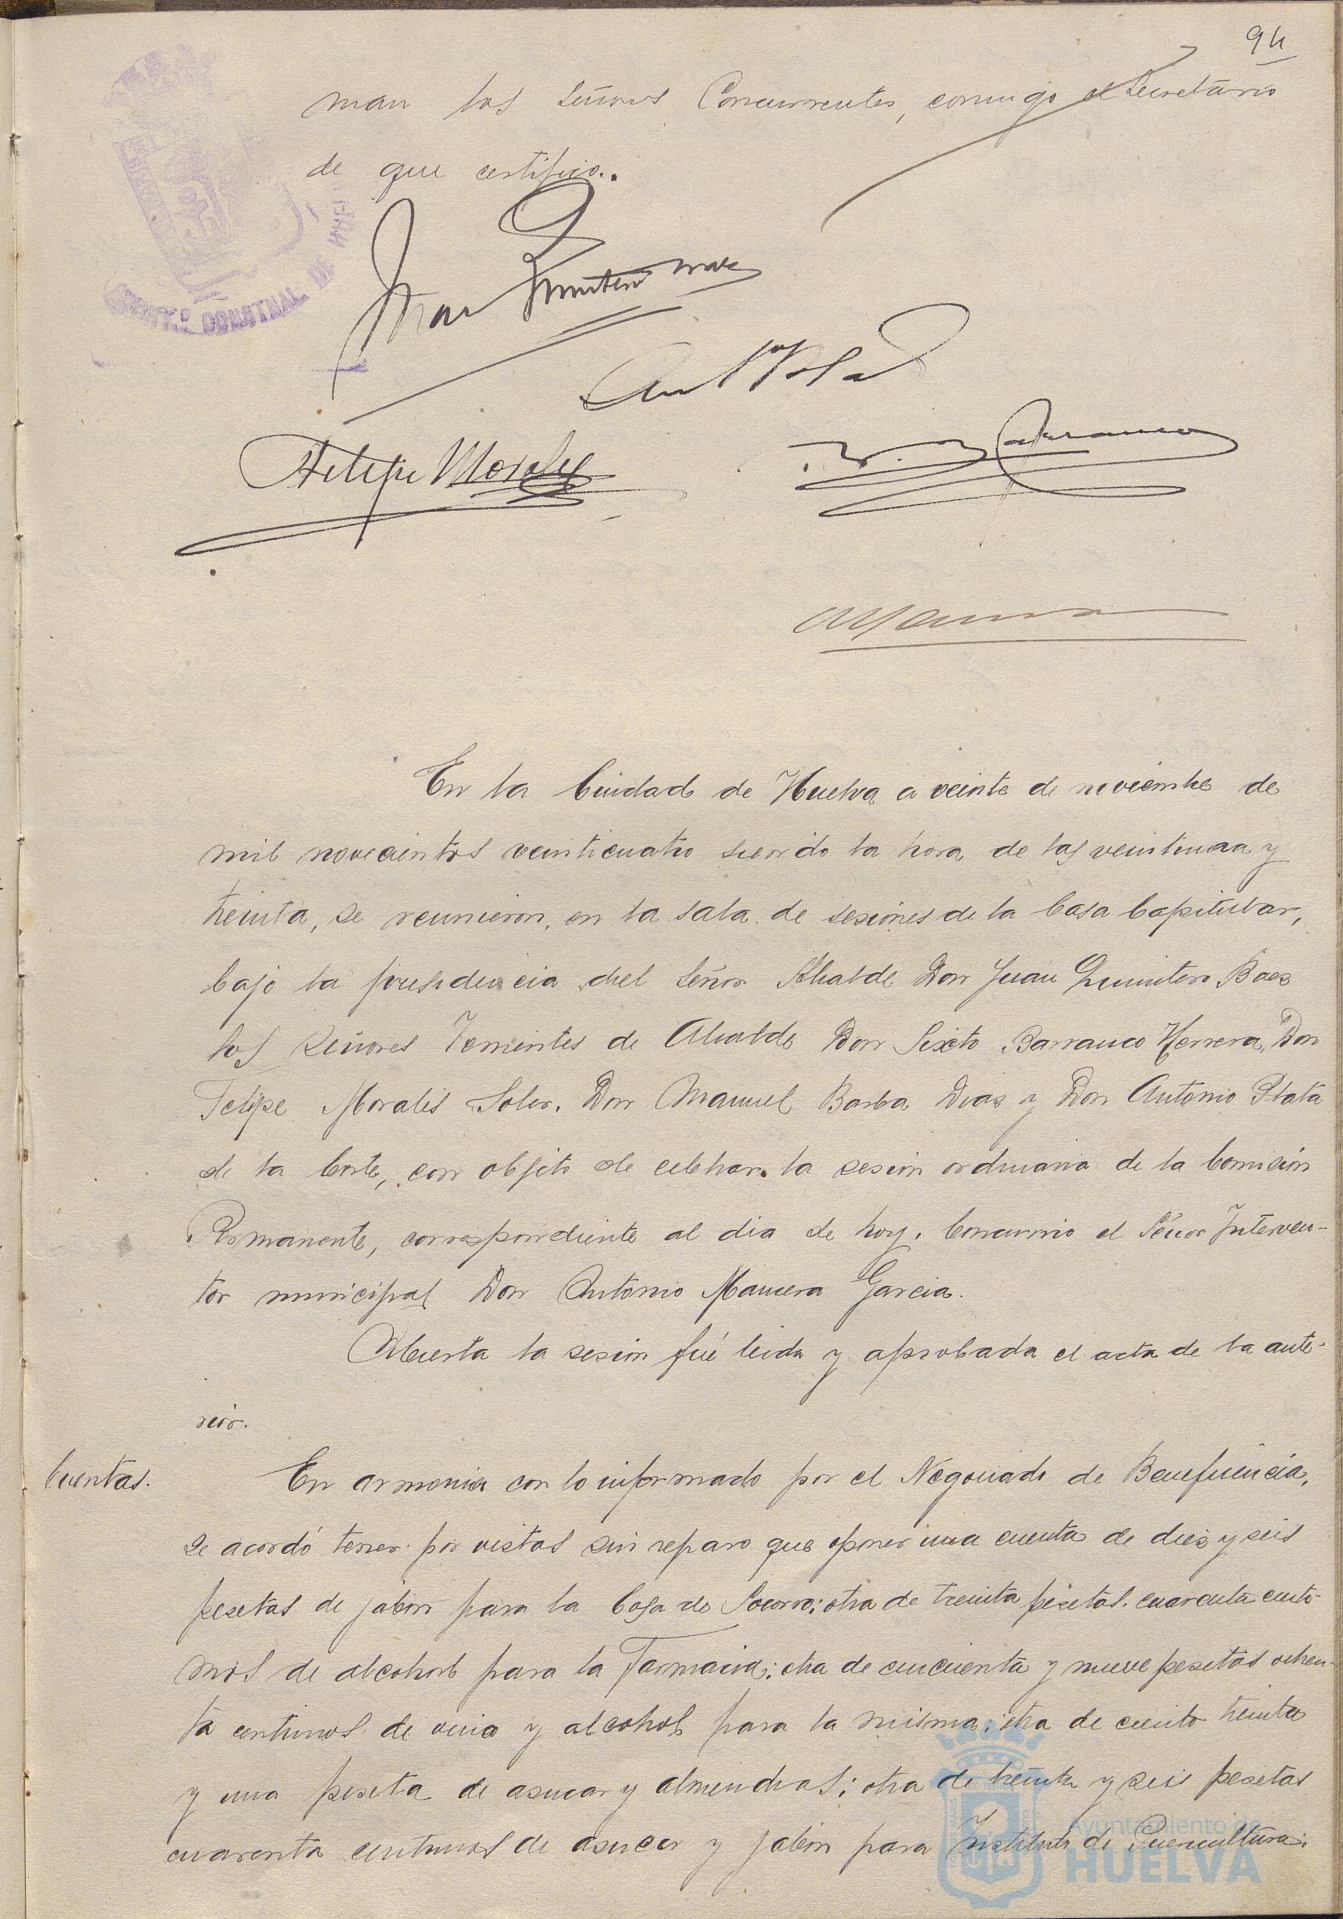 94
man los señores Concurrentes, conmigo el Secretario
de que certifico.
Juan Quintero Baez
Ant Plata
Felipe Morales
S. Barranco
A Mancera
En la Ciudad de Huelva a veinte de noviembre de
mil novecientos veinticuatro siendo la hora de las veintiuna y
treinta, se reunieron, en la sala de sesiones de la Casa Capitular,
bajo la presidencia del Señor Alcalde Don Juan Quintero Baez
los Señores Tenientes de Alcalde Don Sixto Barranco Herrera, Don
Felipe Morales Soler, Don Manuel Barba Diaz y Don Antonio Plata
de la Corte, con objeto de celebrar la sesion ordinaria de la Comision
Permanente, correspondiente al dia de hoy. Concurrio el Señor Interven-
tor municipal Don Antonio Mancera Garcia.
Abierta la sesion fué leida y aprobada el acta de la ante-
rior.
Cuentas.
En armonia con lo informado por el Negociado de Beneficencia,
se acordó tener por vistas sin reparo que oponer una cuenta de diez y seis
pesetas de jabon para la Casa de Socorro; otra de treinta pesetas cuarenta centi-
mos de alcohol para la Farmacia; otra de cincuenta y nueve pesetas ochen-
ta centimos de vino y alcohol para la misma; otra de ciento treinta
y una peseta de azucar y almendras; otra de treinta y seis pesetas
cuarenta centimos de azucar y jabon para Instituto de Puericultura;
Ayuntamiento de
HUELVA